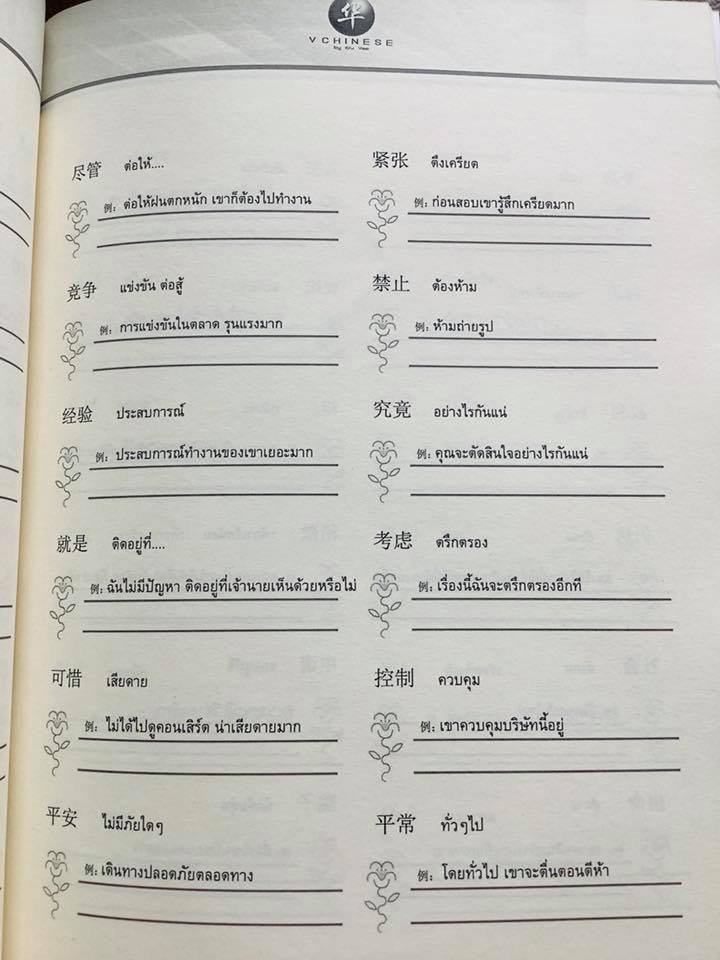 华
VCHINESE
by Kru Vee
尽管 ต่อให้....
例: ต่อให้ฝนตกหนัก เขาก็ต้องไปทำงาน
紧张 ตึงเครียด
例: ก่อนสอบเขารู้สึกเครียดมาก
竞争 แข่งขัน ต่อสู้
例: การแข่งขันในตลาด รุนแรงมาก
禁止 ต้องห้าม
例: ห้ามถ่ายรูป
经验 ประสบการณ์
例: ประสบการณ์ทำงานของเขาเยอะมาก
究竟 อย่างไรกันแน่
例: คุณจะตัดสินใจอย่างไรกันแน่
就是 ติดอยู่ที่....
例: ฉันไม่มีปัญหา ติดอยู่ที่เจ้านายเห็นด้วยหรือไม่
考虑 ตรึกตรอง
例: เรื่องนี้ฉันจะตรึกตรองอีกที
可惜 เสียดาย
例: ไม่ได้ไปดูคอนเสิร์ต น่าเสียดายมาก
控制 ควบคุม
例: เขาควบคุมบริษัทนี้อยู่
平安 ไม่มีภัยใดๆ
例: เดินทางปลอดภัยตลอดทาง
平常 ทั่วๆไป
例: โดยทั่วไป เขาจะตื่นตอนตีห้า